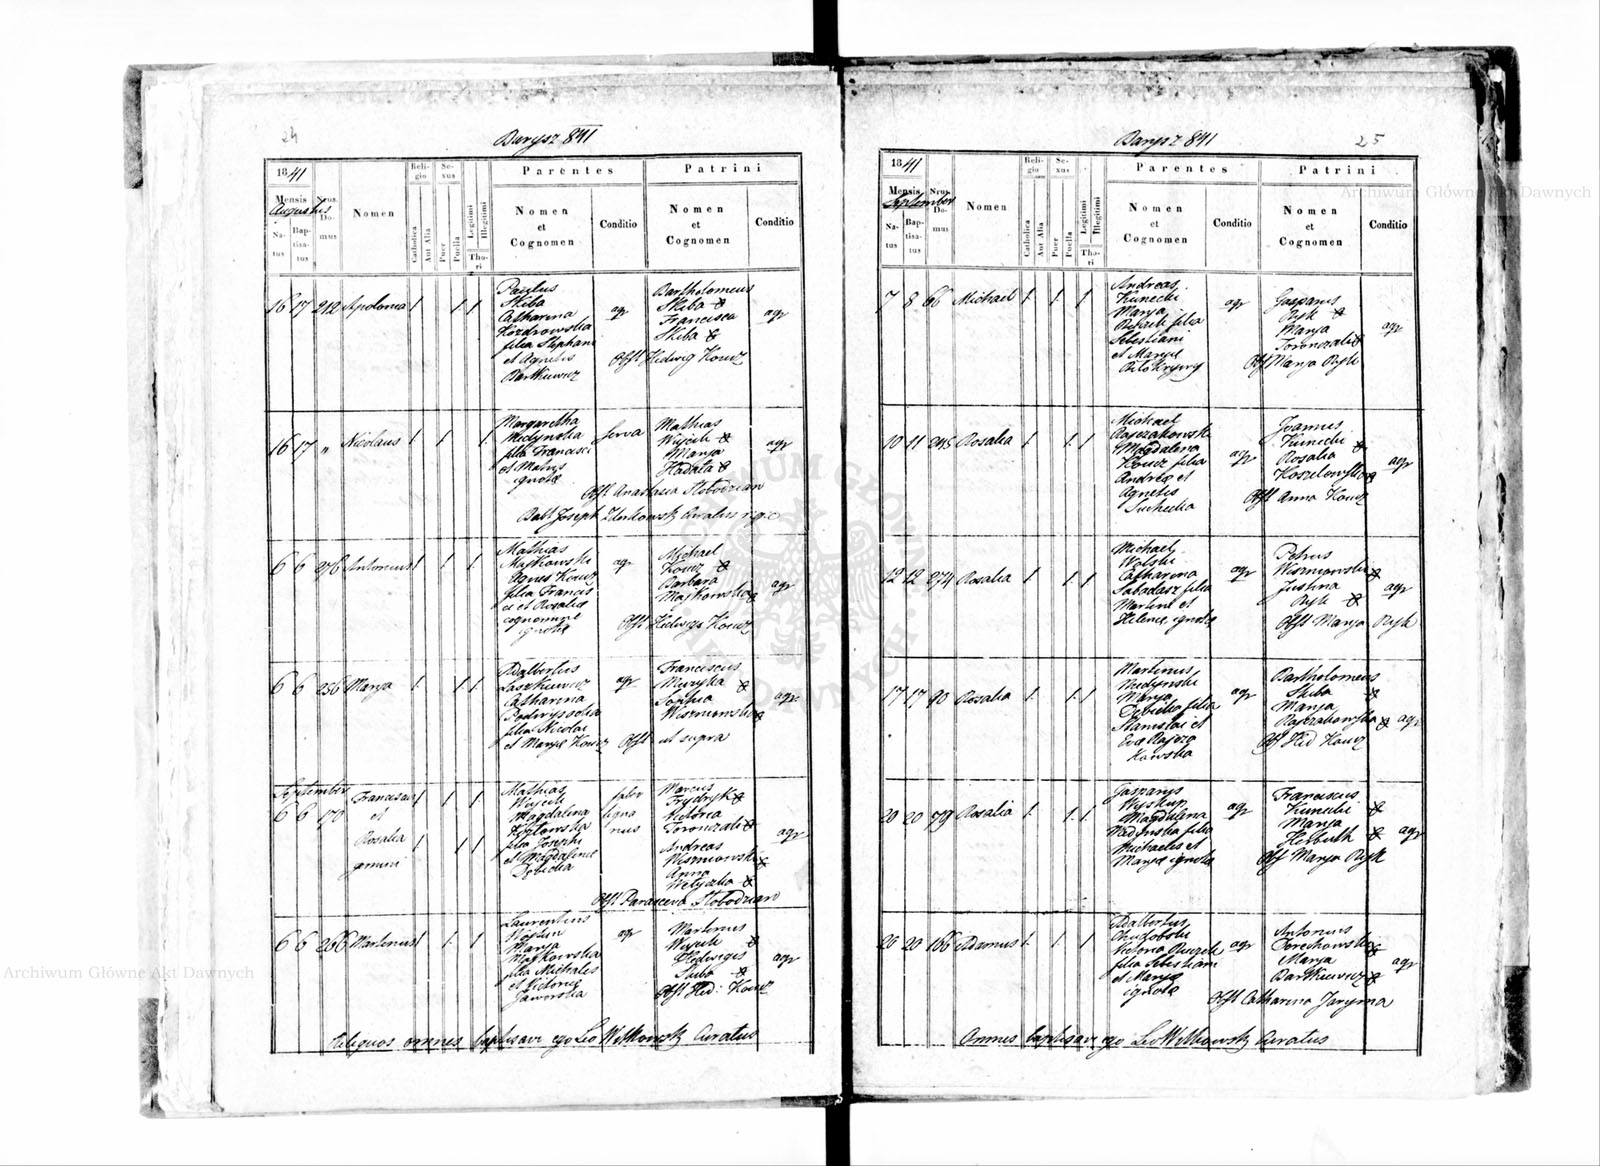 24
Barysz 841
1841
Mensis
Augustus
Na-
tus
Bap-
tisa-
tus
Nrus
Do-
mus
Nomen
Reli-
gio
Catholica
Aut Alia
Se-
xus
Puer
Puella
Legitimi
Illegitimi
Tho-
ri
Parentes
Nomen
et
Cognomen
Conditio
Patrini
Nomen
et
Cognomen
Conditio
16 17 212 Apolonia 1 1 1
Paulus
Skiba
Catharina
Kozdrowska
filia Stephani
et Agnetis
Bartkiewicz
agr
Bartholomeus
Skiba
Francisca
Skiba
agr
Obst Hedwig Koucz
16 17 " Nicolaus 1 1 1
Margaretha
Medynska
filia Francisci
et Matris
ignotæ
serva
Mathias
Wojcik
Marya
Hadała
agr
Obst Anastasia Słobodzian
Bapt Joseph Curatus r. g. c
6 6 276 Antonius 1 1 1
Mathias
Majkowski
Agnes Koucz
filia Francis
ci et Rosaliæ
cognomine
ignotæ
agr
Michael
Koucz
Barbara
Majkowska
agr
Obst Hedwigs Koucz
6 6 256 Marya 1 1 1
Adalbertus
Laszkiewicz
Catharina
Podwysocka
filia Nicolai
et Maryæ Koucz
agr
Franciscus
Muzyka
Sophia
Wiszniowska
agr.
Obst ut supra
September
6 6 170 Francisca
et
Rosalia
gemini
Mathias
Wojcik
Magdalena
filia Josephi
et Magdalenæ
Dębicka
faber
ligna
rius
Marcus
Frydryk
Victoria
Toronczak
Andreas
Wiszniowski
Anna
agr
Obst Parasceva Słobodzian
6 6 266 Martinus 1 1 1
Laurentius
Marya
Majkowska
filia Michaelis
et Victoriæ
Jaworska
agr
Martinus
Wojcik
Hedwiges
Skiba
agr
Obst Hed: Koucz
Reliquos omnes baptisavi ego Leo Witkowsky Curatus
25
Barysz 841
1841
Mensis
September
Na-
tus
Bap-
tisa-
tus
Nrus
Do-
mus
Nomen
Reli-
gio
Catholica
Aut Alia
Se-
xus
Puer
Puella
Legitimi
Illegitimi
Tho-
ri
Parentes
Nomen
et
Cognomen
Conditio
Patrini
Nomen
et
Cognomen
Conditio
7 8 66 Michael 1 1 1
Andreas
Kunecki
Marya
filia
Sebastiani
et Maryæ
agr
Gasparus
Byk
Marya
Toronczak
agr
Obst Marya Byk
10 11 245 Rosalia 1 1 1
Michael
Rajczakowski
Magdalena
Koucz filia
Andreæ et
Agnetis
Suchecka
agr
Joannes
Kunecki
Rosalia
Kozelowska
agr
Obst Anna Koucz
12 12 274 Rosalia 1 1 1
Michael
Wolski
Catharina
Sabadasz filia
Martini et
Helenæ ignotæ
agr
Petrus
Wiszniowski
Justina
Byk
agr
Obst Marya Byk
17 17 90 Rosalia 1 1 1
Martinus
Medynski
Marya
Dębicka filia
Stanislai et
Evæ Rajcza
kowska
agr
Bartholomeus
Skiba
Marya
Rajczakowska
agr
Obst Hed Koucz
20 20 79 Rosalia 1 1 1
Gasparus
Magdalena
filia
Michaelis et
Maryæ ignotæ
agr
Franciscus
Kunecki
Marya
Herbuth
agr
Obst Marya Byk
20 20 166 Adamus 1 1 1
Adalbertus
Victoria
filia Sebastiani
et Maryæ
ignotæ
agr
Antonius
Marya
Bartkiewicz
agr
Obst Catharina Jaryma
Omnes baptisavi ego Leo Witkowsky Curatus
Archiwum Główne Akt Dawnych
Archiwum Główne Akt Dawnych